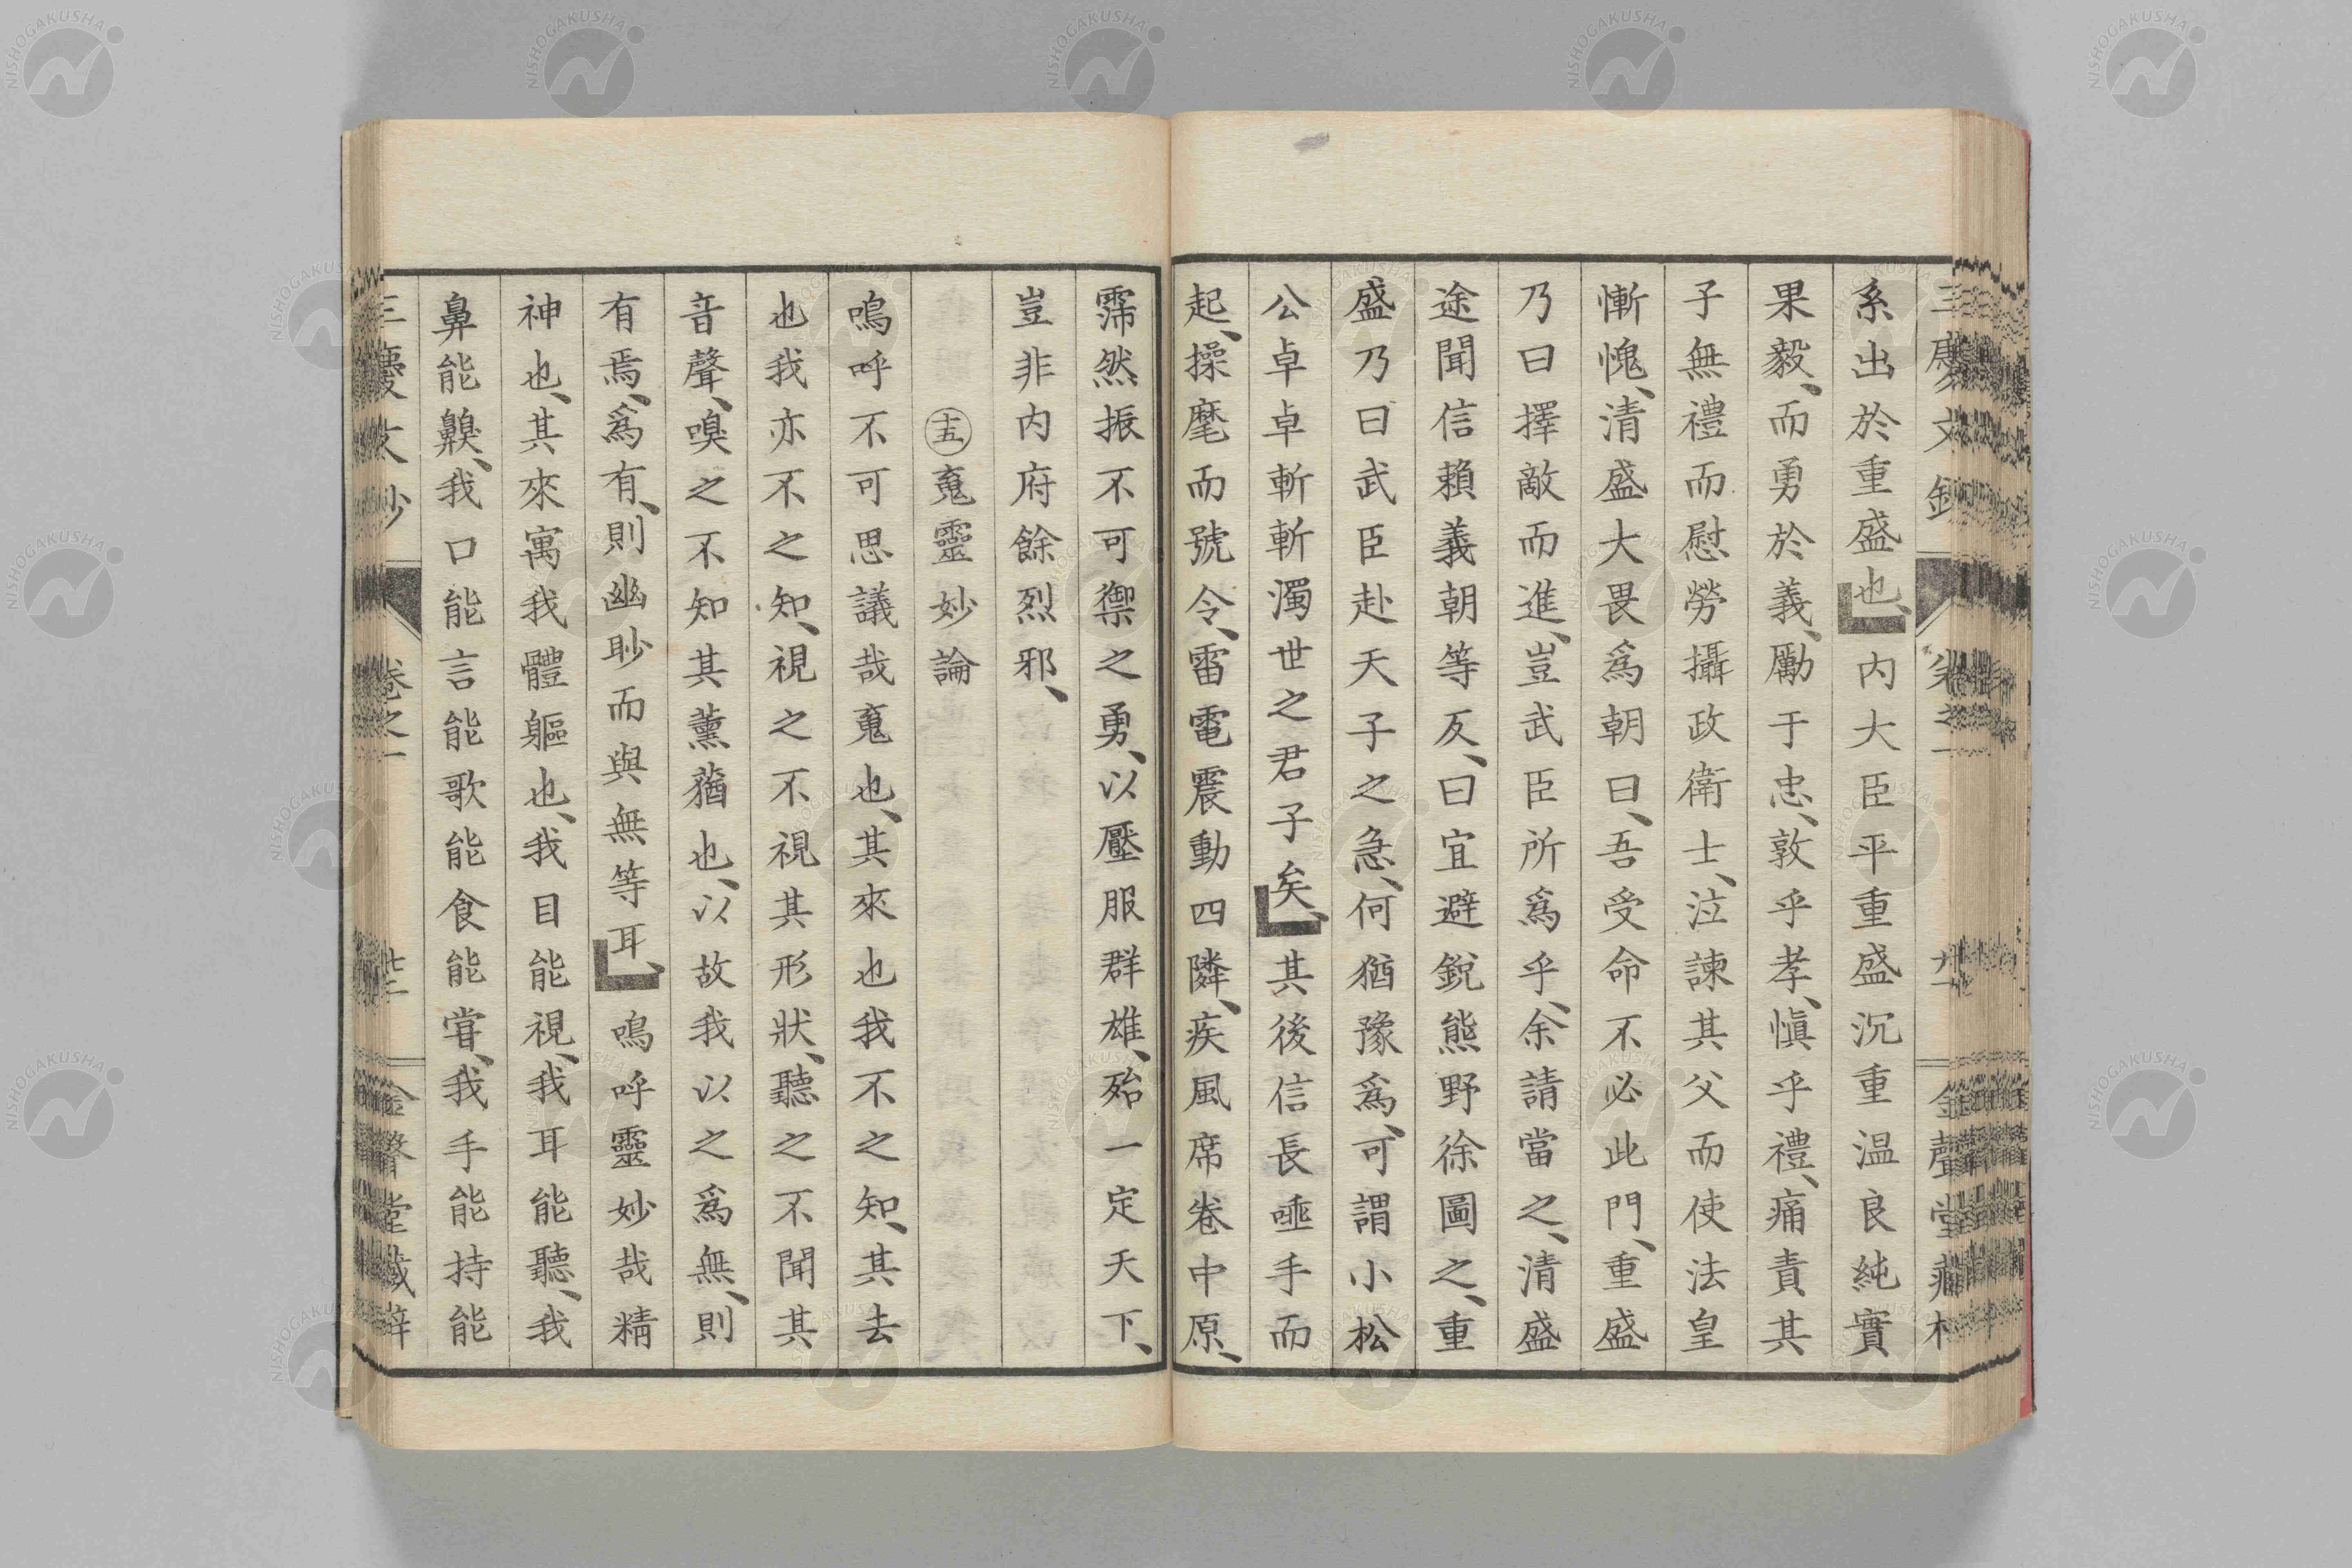 系出於重盛也、内大臣平重盛沉重温良純實
果毅、而勇於義、勵于忠、敦乎孝、愼乎禮、痛責其
子無禮而慰勞攝政衛士、泣諫其父而使法皇
慚愧、清盛大畏爲朝曰、吾受命不必此門、重盛
乃曰擇敵而進、豈武臣所爲乎、余請當之、清盛
途聞信頼義朝等反、曰宜避銳熊野徐圖之、重
盛乃曰武臣赴天子之急、何猶豫爲、可謂小松
公卓卓斬斬濁世之君子矣、其後信長唾手而
起、操麾而號令、雷電震動四隣、疾風席卷中原、
霈然振不可禦之勇、以壓服群雄、殆一定天下、
豈非内府餘烈邪、
十五 䰟靈妙論
鳴呼不可思議哉䰟也、其來也我不之知、其去
也我亦不之知、視之不視其形狀、聽之不聞其
音聲、嗅之不知其薰蕕也、以故我以之爲無、則
有焉、爲有、則幽眇而與無等耳、鳴呼靈妙哉精
神也、其來寓我體軀也、我目能視、我耳能聽、我
鼻能齅、我口能言能歌能食能嘗、我手能持能
三慶文鈔 卷之一 廿二 金聲堂藏梓
NISHOGAKUSHA